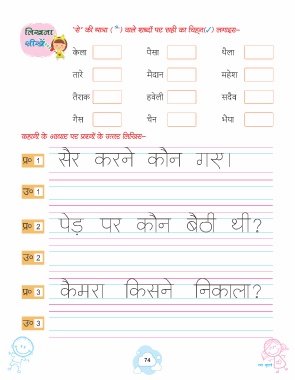 लिखना
सीखें
'से' की मात्रा ( ै ) वाले शब्दों पर सही का चिह्न(✓) लगाइए-
केला पैसा थैला
तारे मैदान महेश
तैराक हवेली सदैव
गेस चेन भैया
कहानी के आधार पर प्रश्नों के उत्तर लिखिए-
प्र० 1 सैर करने कौन गए।
उ० 1
प्र० 2 पेड़ पर कौन बैठी थी?
उ० 2
प्र० 3 कैमरा किसने निकाला?
उ० 3
74